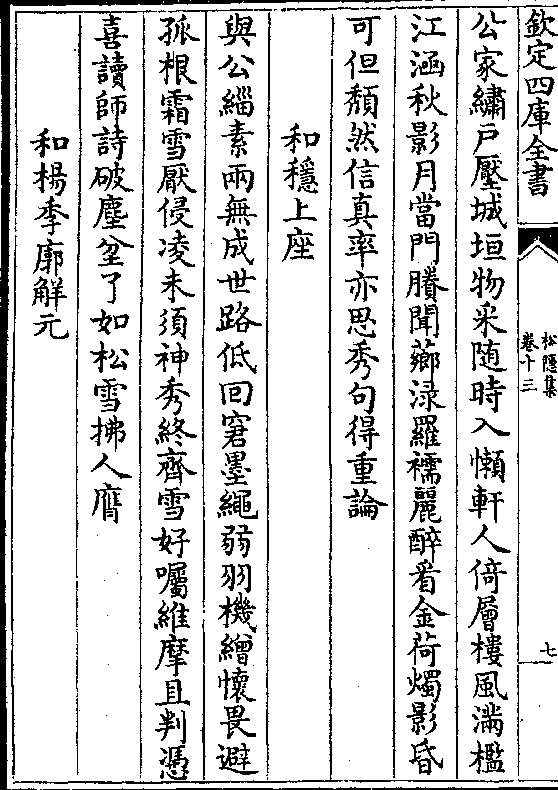 欽定四庫全書
松隱集
卷十三
七
公家繡戶壓城垣物采随時入懶軒人倚層樓風滿檻
江涵秋影月當門賸聞薌渌羅襦麗醉看金荷燭影昏
可但頽然信真率亦思秀句得重論
和穩上座
與公緇素兩無成世路低回窘墨繩弱羽機矰懷畏避
孤根霜雪厭侵凌未須神秀終齊雪好囑維摩且判憑
喜讀師詩破塵坌了如松雪拂人膺
和楊季廓解元